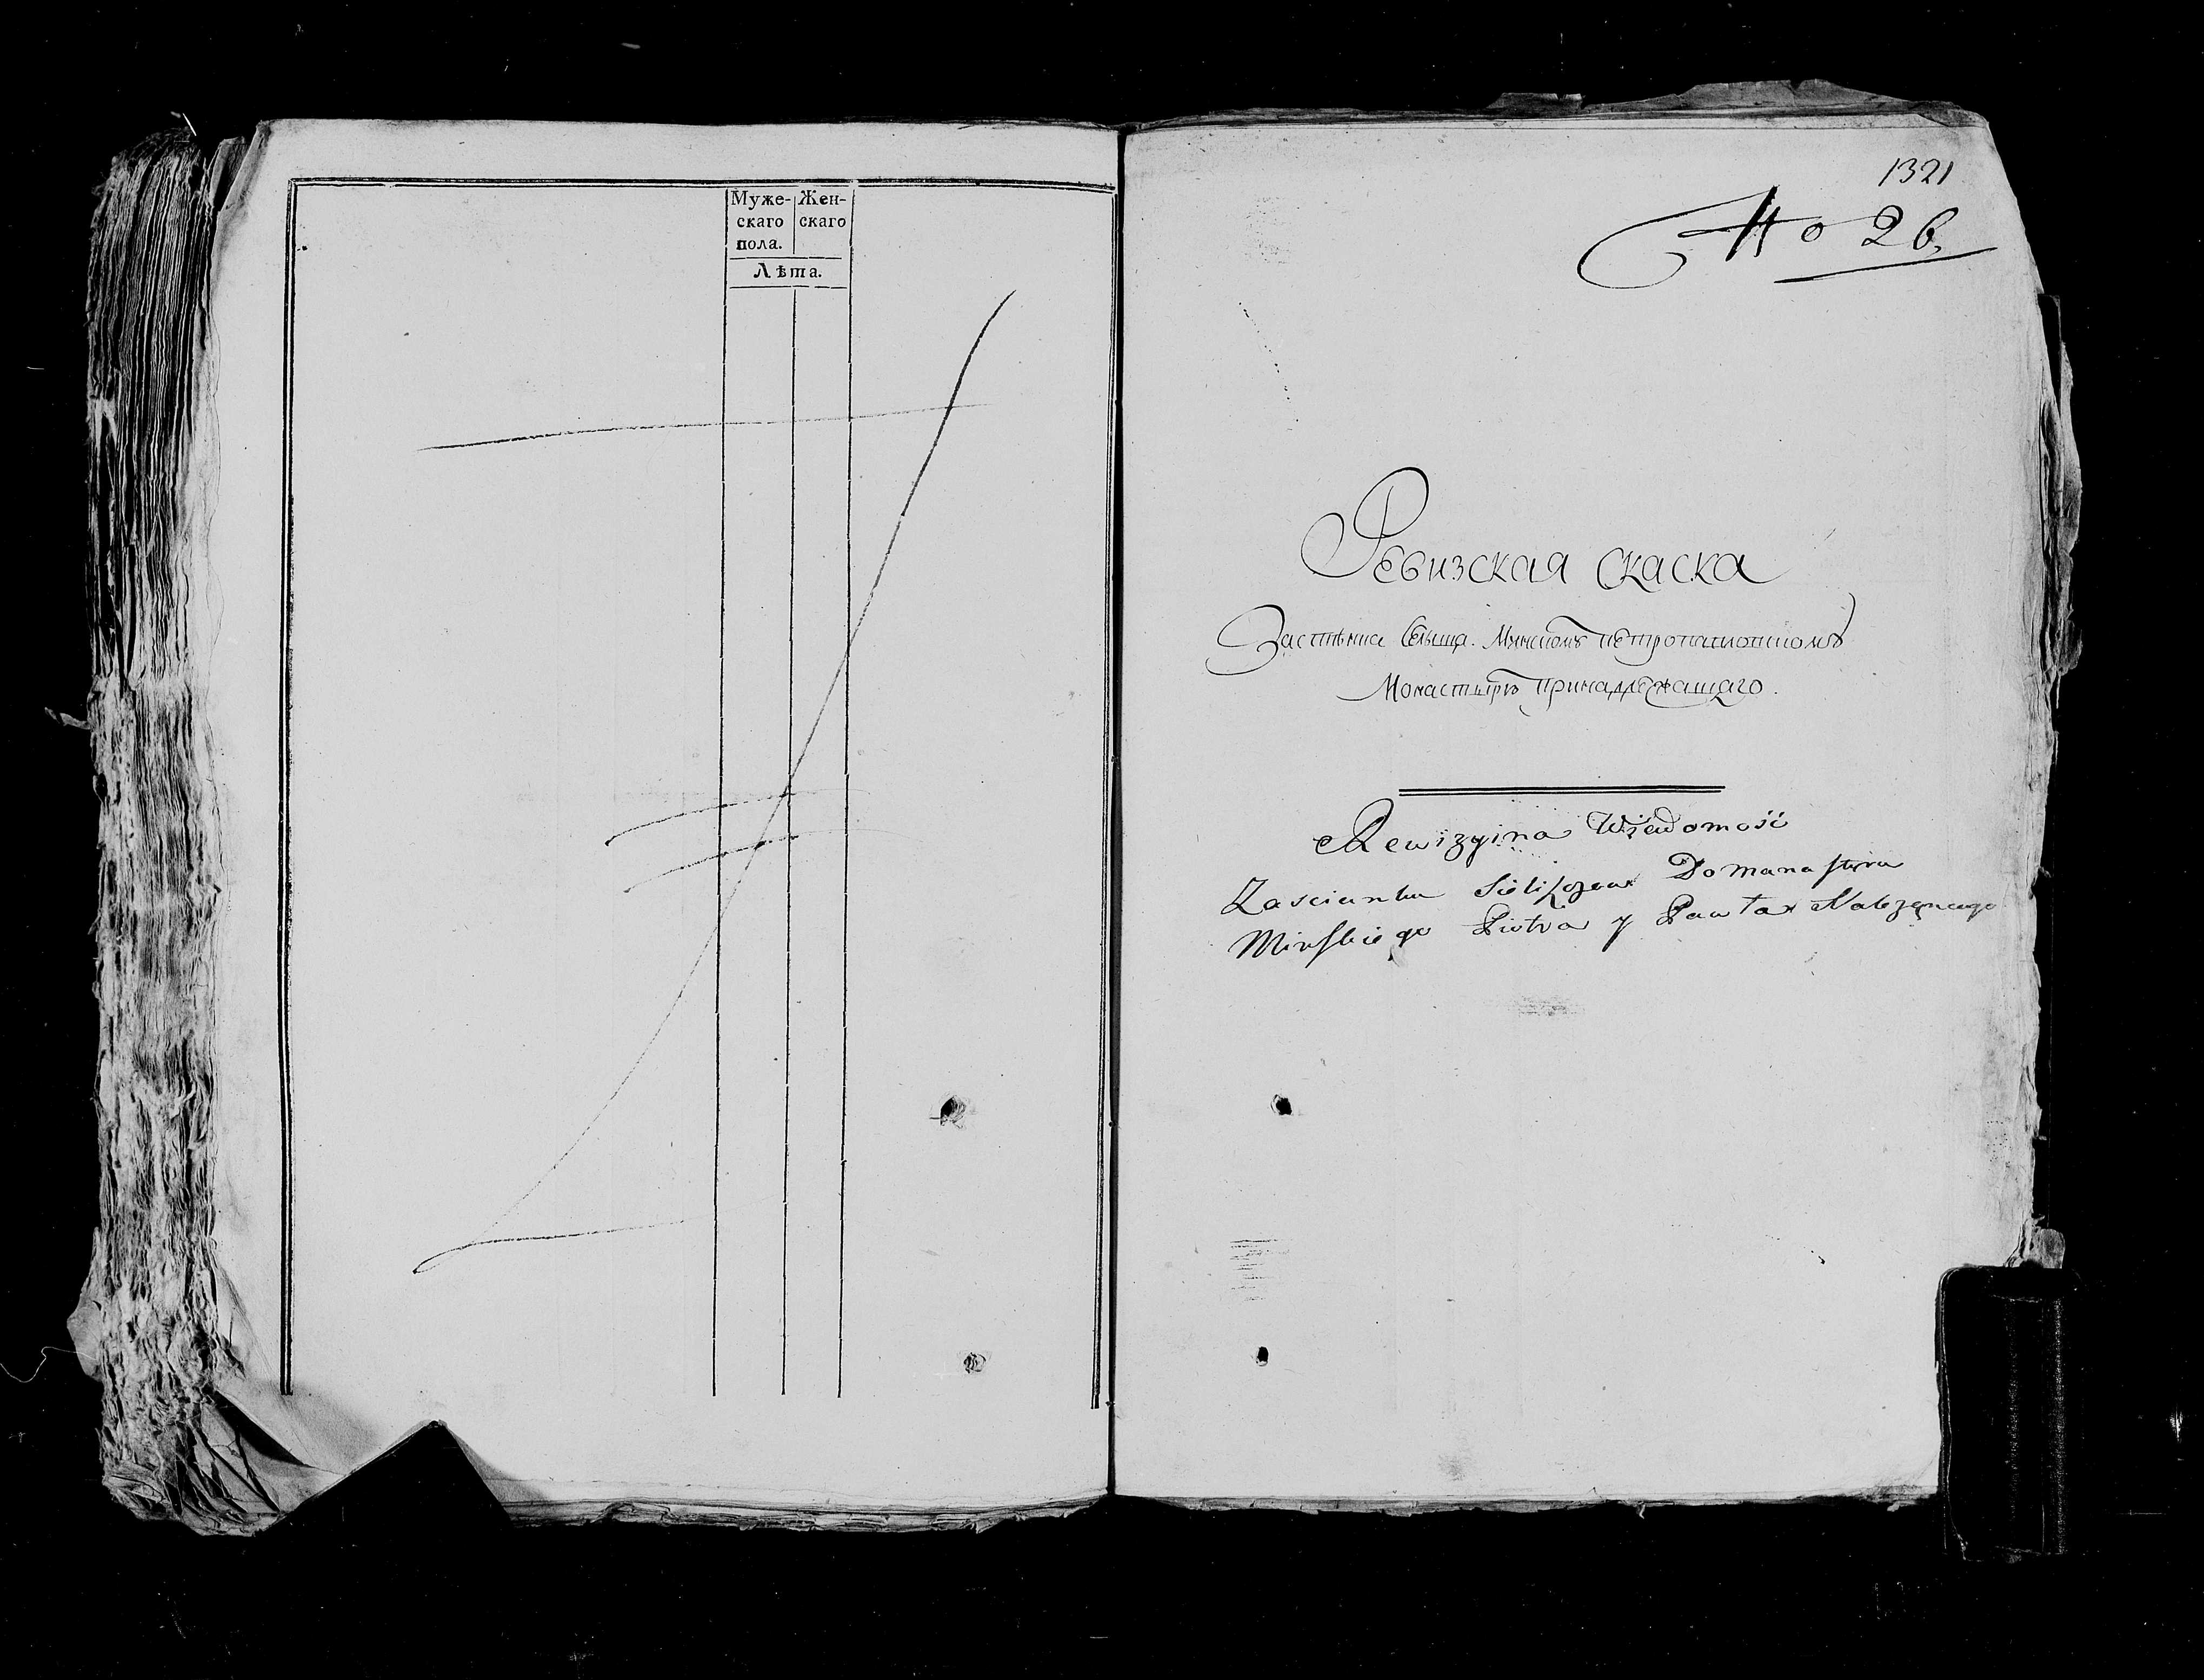 Муже- Жен-
скаго скаго
пола.
Лѣта.
1321
No 26,
Ревизская скаска
Застѣнка Селыща. Минскомъ петропавловскомъ
Монастырѣ принадлежащаго.
Rewizyina Wiadomość
Zascianku Do Manastyru
Minskiego Piotra y Pawła Nalezącego